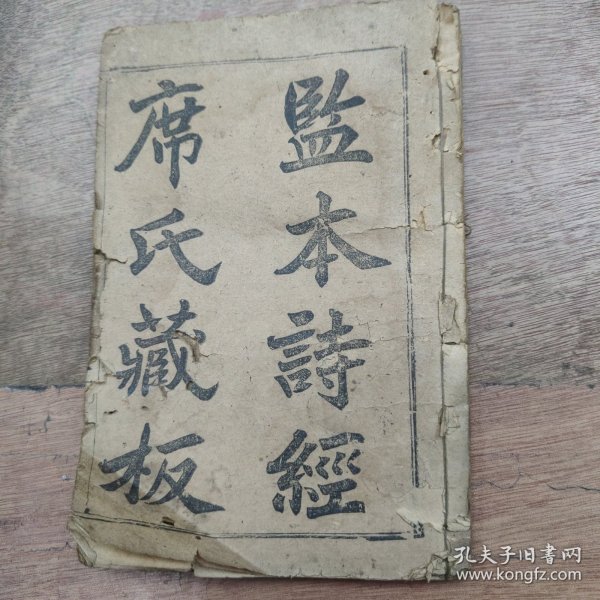 監本詩經
席氏藏板
孔夫子旧書网
www.kongfz.com